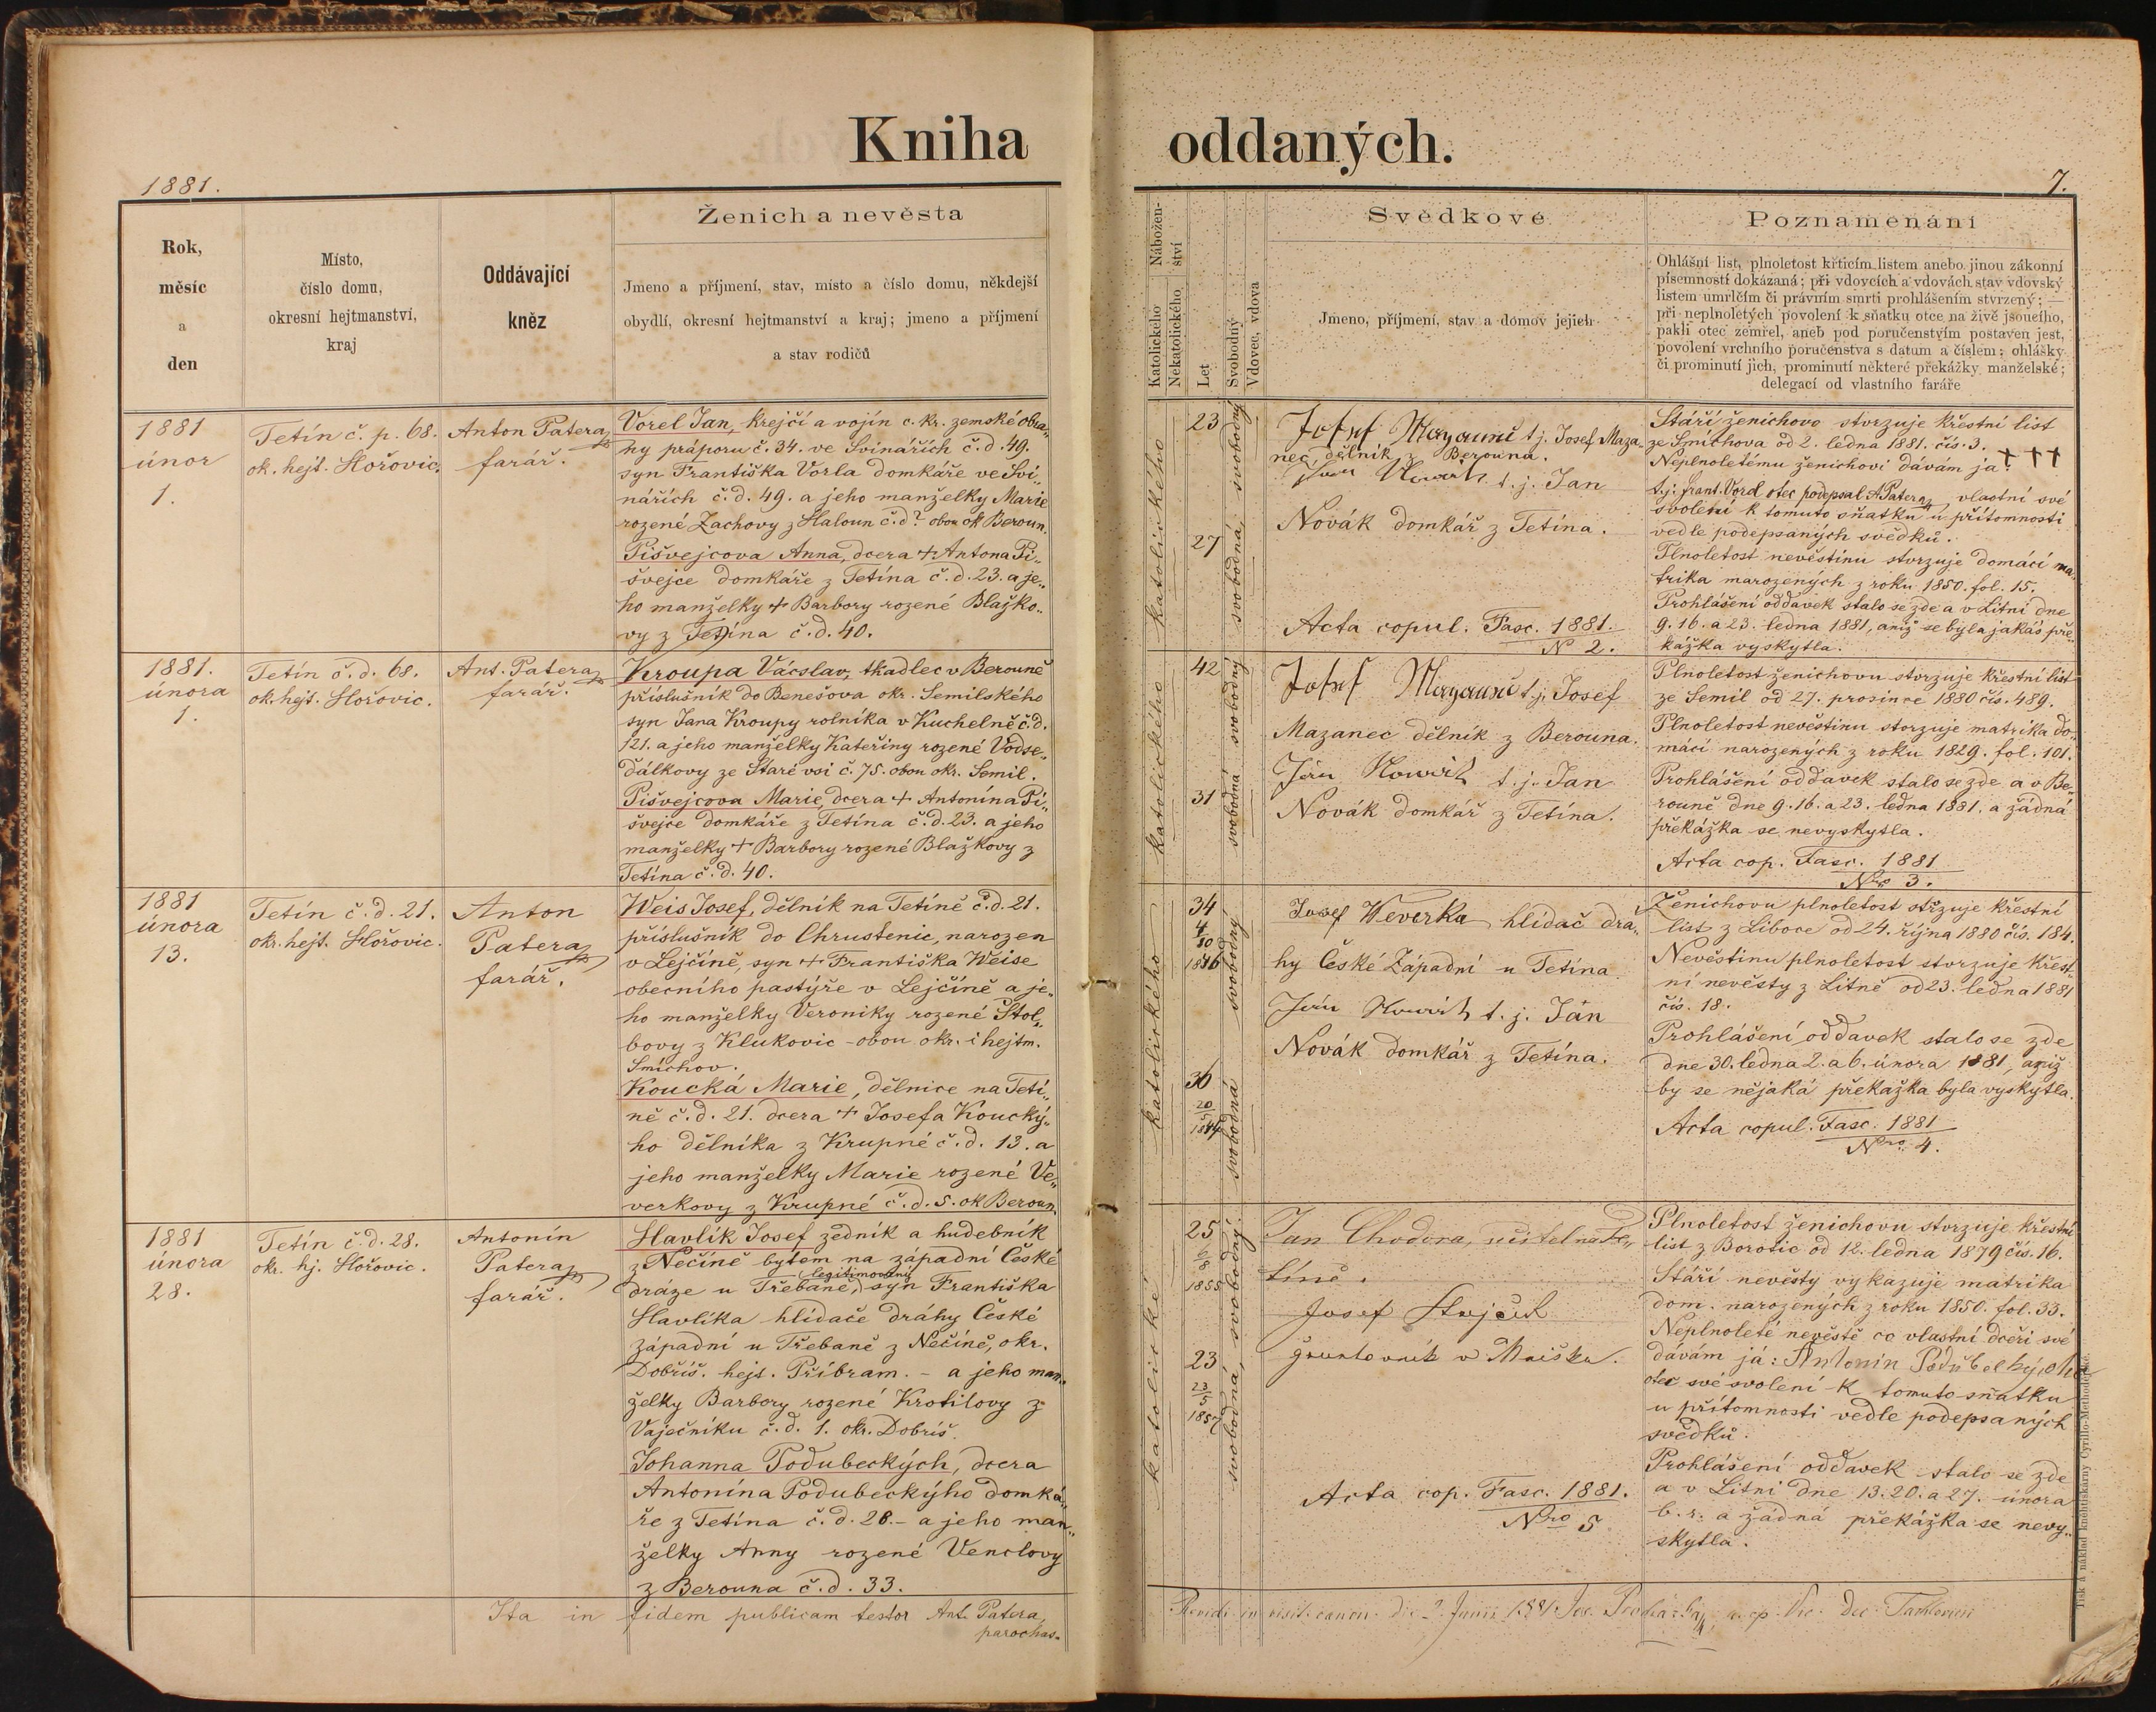 Kniha oddaných.
1881.
7.
Rok,
měsíc
a
den
Místo,
číslo domu,
okresní hejtmanství,
kraj
Oddávající
kněz
Ženich a nevěsta
Jmeno a příjmení, stav, místo a číslo domu, někdejší
obydlí, okresní hejtmanství a kraj; jmeno a příjmení
a stav rodičů
Nábožen-
ství
Katolického
Nekatolického
Let
Svobodný
Vdovec, vdova
Svědkové
Jmeno, příjmení, stav a domov jejich
Poznamenání
Ohlášní list, plnoletost křticím listem anebo jinou zákonní
písemností dokázaná; při vdovcích a vdovách stav vdovský
listem umrlčím či právním smrti prohlášením stvrzený; —
při neplnoletých povolení k sňatku otce na živě jsoucího,
pakli otec zemřel, aneb pod poručenstvím postaven jest,
povolení vrchního poručenstva s datum a číslem; ohlášky
či prominutí jich, prominutí některé překážky manželské;
delegací od vlastního faráře
1881
únor
1.
Tetín č. p. 68.
ok. hejt. Hořovic.
Anton Patera
farář.
Vorel Jan, krejčí a vojín c. kr. zemské obra„
ny práporu č. 34. ve Svinářích č. d. 49.
syn Františka Vorla domkáře ve Svi„
nářích č. d. 49. a jeho manželky Marie
rozené Zachovy z Haloun č. d? obou ok Beroun.
Pišvejcova Anna, dcera + Antona Pi„
švejce domkáře z Tetína č. d. 23. a je„
ho manželky + Barbory rozené Blažko„
vy z Tetína č. d. 40.
katolického katolického
23
27
svobodná, svobodný
Josef t. j. Josef Maza„
nec, dělník z Berouna.
t. j. Jan
Novák domkář z Tetína.
Acta copul. Fasc. 1881.
N 2.
Stáří ženichovo stvrzuje křestní list
ze Smíchova od 2. ledna 1881. čís. 3.
Neplnoletému ženichovi dávám já: + + +
t. j. frant. Vorel otec podepsal A Patera vlastní své
svolení k tomuto sňatku u přítomnosti
vedle podepsaných svědků.
Plnoletost nevěstinu stvrzuje domácí ma„
trika narozených z roku 1850. fol. 15.
Prohlášení oddavek stalo se zde a v Litni dne
9. 16. a 23. ledna 1881, aniž se byla jakás pře„
kážka vyskytla.
1881.
února
1.
Tetín č. d. 68.
ok. hejt. Hořovic.
Ant. Patera
farář.
Kroupa Vácslav, tkadlec v Berouně
příslušník do Benešova okr. Semilského
syn Jana Kroupy rolníka v Kuchelně č. d.
121. a jeho manželky Kateřiny rozené Vodse„
ďálkovy ze Staré vsi č. 75. obou okr. Semil.
Pišvejcova Marie, dcera + Antonína Pi„
švejce domkáře z Tetína č. d. 23. a jeho
manželky + Barbory rozené Blažkovy z
Tetína č. d. 40.
katolického katolického
42
31
svobodná svobodný
Josef t. j. Josef
Mazanec dělník z Berouna.
t. j. Jan
Novák domkář z Tetína.
Plnoletost ženichovu stvrzuje křestní list
ze Semil od 27. prosince 1880 čís. 489.
Plnoletost nevěstinu stvrzuje matrika do„
mácí narozených z roku 1829. fol. 101.
Prohlášení oddavek stalo se zde a v Be„
rouně dne 9. 16. a 23. ledna 1881. a žádná
překážka se nevyskytla.
Acta cop. Fasc. 1881
Nro 3.
1881
února
13.
Tetín č. d. 21.
okr. hejt. Hořovic.
Anton
Patera
farář.
Weis Josef, dělník na Tetíně č. d. 21.
příslušník do Chrustenic, narozen
v Lejčíně, syn + Františka Weise
obecního pastýře v Lejčíně a je„
ho manželky Veroniky rozené Štol„
bovy z Klukovic - obou okr. i hejtm.
Smíchov.
Koucká Marie, dělnice na Tetí„
ně č. d. 21. dcera + Josefa Koucký„
ho dělníka z Krupné č. d. 13. a
jeho manželky Marie rozené Ve„
verkovy z Krupné č. d. 5. ok Beroun.
katolického katolického
34
4/10
1846
36
20/5
1844
svobodná svobodný
Josef Weverka hlídač drá„
hy České Západní u Tetína
t. j. Jan
Novák domkář z Tetína.
Ženichovu plnoletost stvrzuje křestní
list z Liboce od 24. října 1880 čís. 184.
Nevěstinu plnoletost stvrzuje křest„
ní nevěsty z Litně od 23. ledna 1881
čís. 18.
Prohlášení oddavek stalo se zde
dne 30. ledna 2. a 6. února 1881, aniž
by se nějaká překážka byla vyskytla.
Acta copul. Fasc. 1881
Nro 4.
1881
února
28.
Tetín č. d. 28.
okr. hj. Hořovic.
Antonín
Patera
farář.
Havlík Josef zedník a hudebník
z Nečíně bytem na západní České
dráze u Třebaně, (legitimovaný) syn Františka
Havlíka hlídače dráhy České
západní u Třebaně z Nečíně, okr.
Dobříš. hejt. Příbram. - a jeho man„
želky Barbory rozené Krotilovy z
Vaječníku č. d. 1. okr. Dobříš.
Johanna Podubeckých, dcera
Antonína Podubeckýho domká„
ře z Tetína č. d. 28. - a jeho man„
želky Anny rozené Venclovy
z Berouna č. d. 33.
katolické
25
6/8
1855
23
23/5
1857
svobodná, svobodný
Jan Chodora, učitel na Te„
tíně.
Josef
v Mníšku.
Acta cop. Fasc. 1881.
Nro 5
Plnoletost ženichovu stvrzuje křestní
list z Borotic od 12. ledna 1879 čís. 16.
Stáří nevěsty vykazuje matrika
dom. narozených z roku 1850. fol. 33.
Neplnoleté nevěstě co vlastní dceři své
dávám já: Antonín
otec své svolení k tomuto sňatku
u přítomnosti vedle podepsaných
svědků.
Prohlášení oddavek stalo se zde
a v Litni dne 13. 20. a 27. února
b. r. a žádná překážka se nevy„
skytla.
Ita in fidem publicam testor Ant. Patera,
parochus.
in visit. canon. Junii 1881
Tisk a náklad kněhtiskárny Cyrillo-Methodějské.